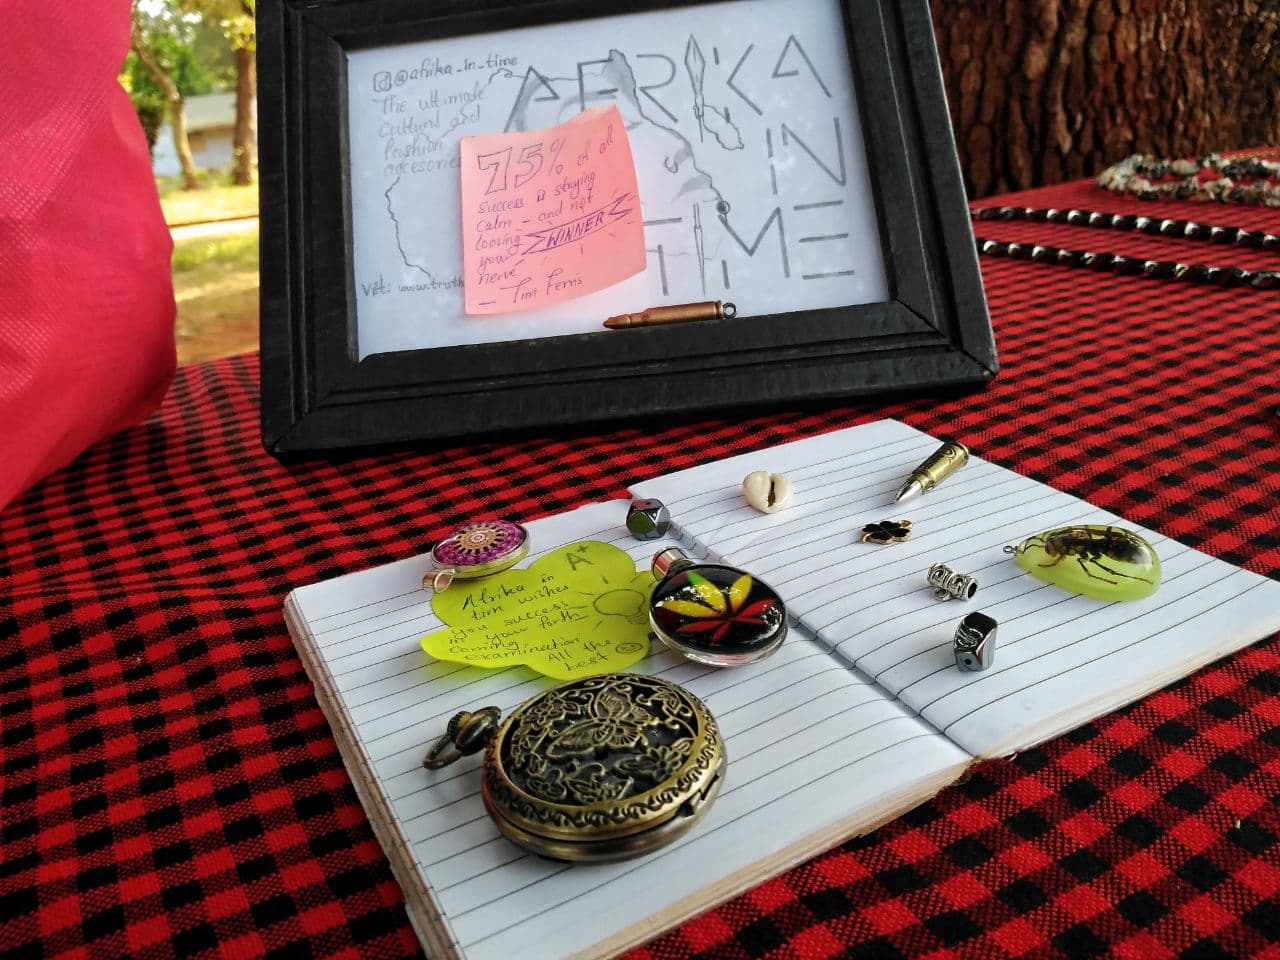 @afrika_in_time
The ultimate
Cultural and
Fashion
accesories
AFRIKA
IN
TIME
75% of all
success is staying
calm - and not
loosing WINNER
your
nerve
- Tim Ferris
Vzt: www.truth
A+
Afrika in
tim wishes
you success
in your forth
coming
examination
All the
best